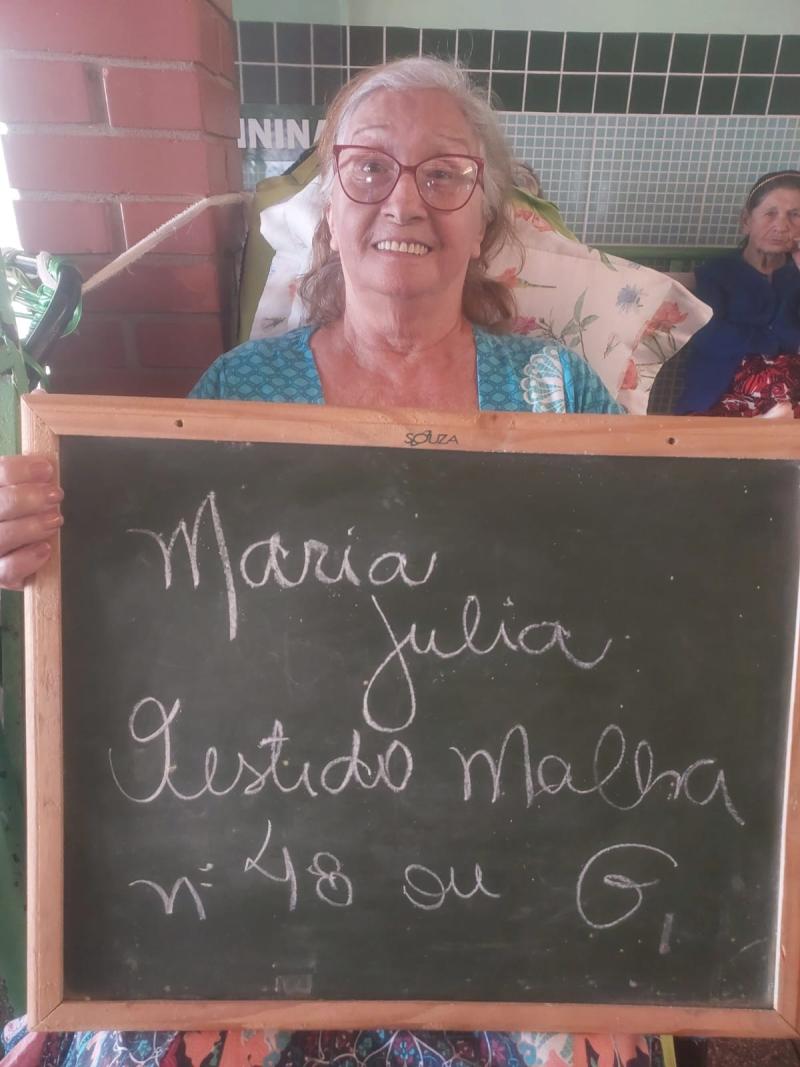 NINA
SOUZA
Maria
Julia
Vestido Malha
nº 48 ou G,